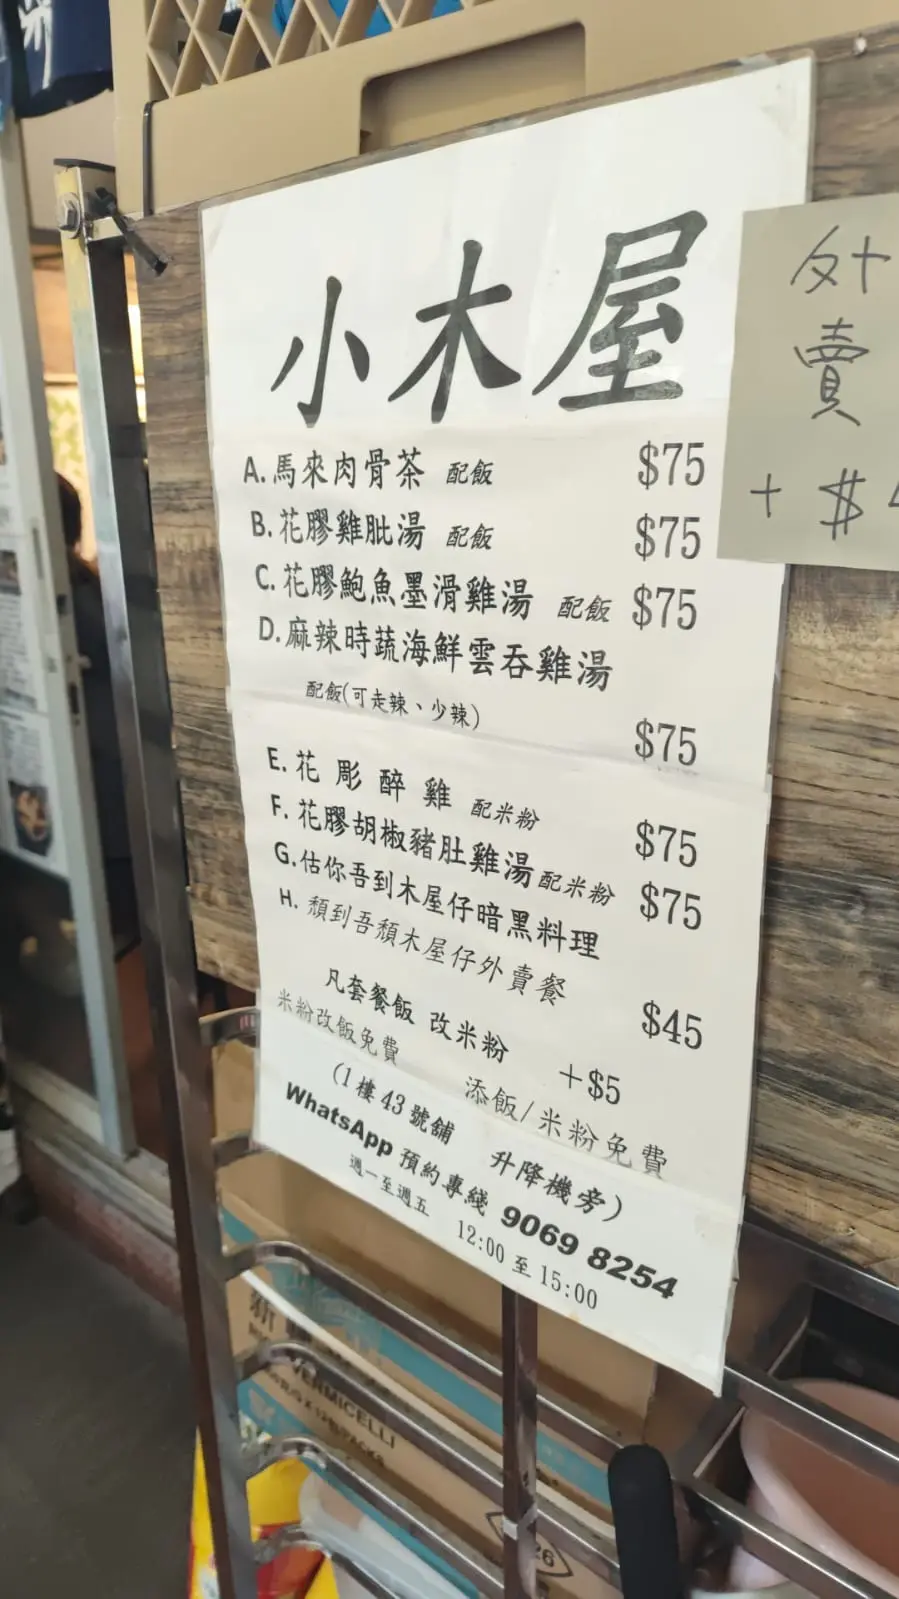 小木屋
A.馬來肉骨茶 配飯 $75
B.花膠雞肶湯 配飯 $75
C.花膠鮑魚墨滑雞湯 配飯 $75
D.麻辣時蔬海鮮雲吞雞湯
配飯(可走辣、少辣)
$75
E.花彫醉雞 配米粉 $75
F.花膠胡椒豬肚雞湯 配米粉 $75
G.估你吾到木屋仔暗黑料理
H.頹到吾頹木屋仔外賣餐 $45
凡套餐飯 改米粉 +$5
米粉改飯免費 添飯/米粉免費
(1樓43號舖 升降機旁)
WhatsApp 預約專綫 9069 8254
週一至週五 12:00 至 15:00
外
賣
+ $
VERMICELLI